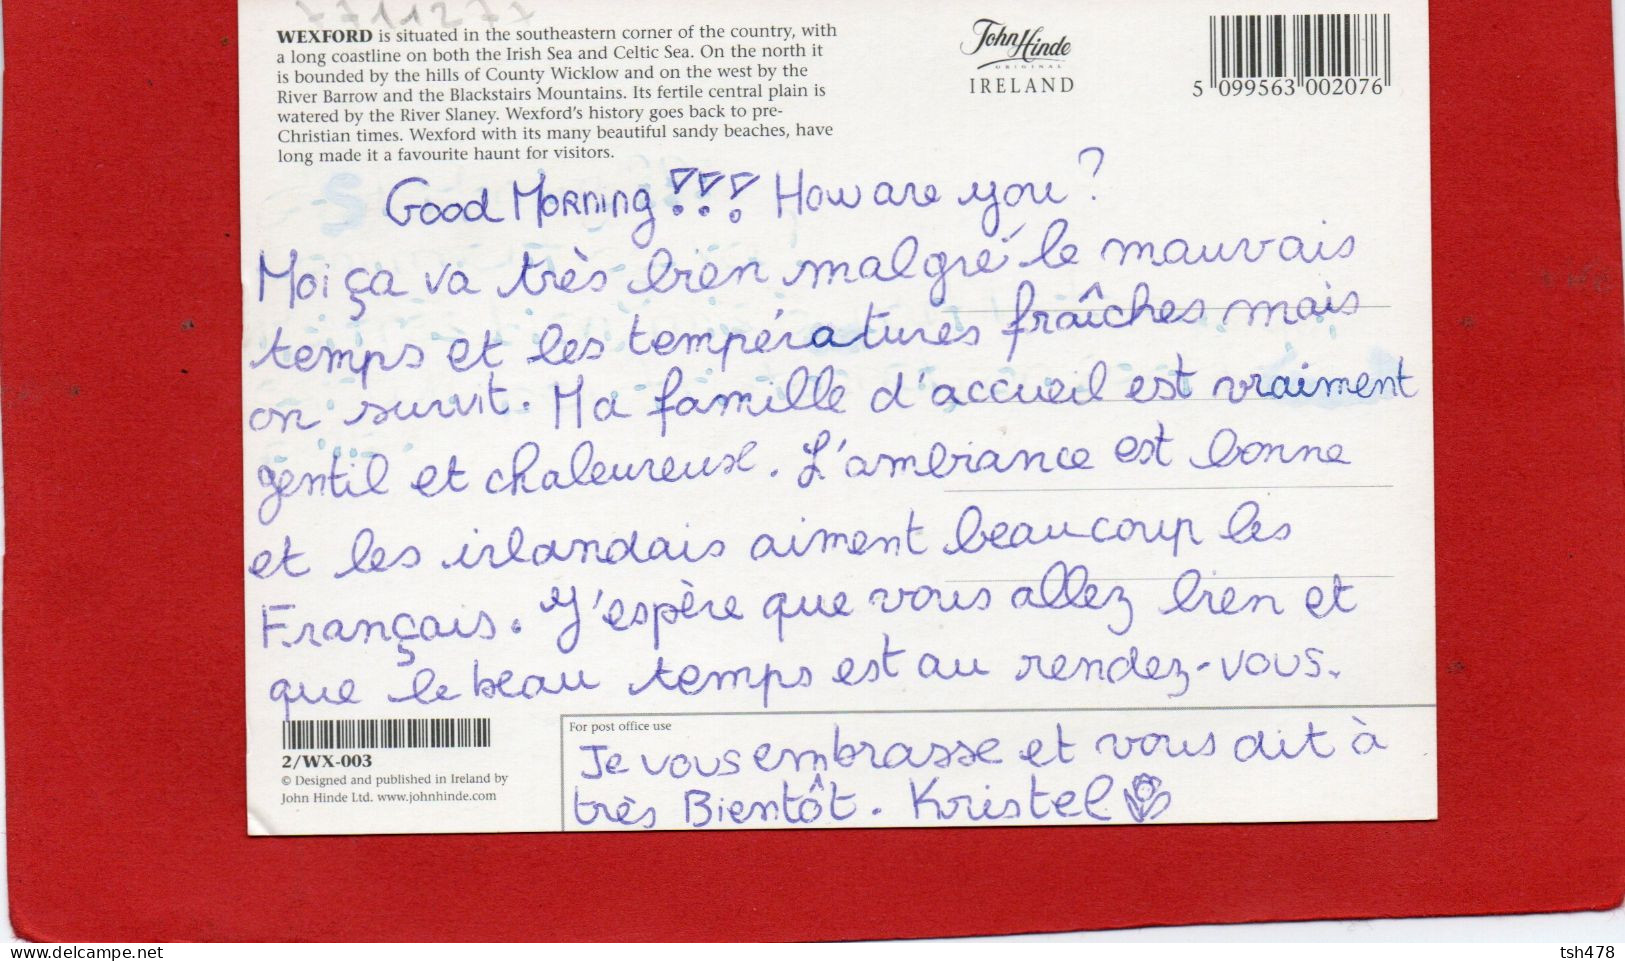 WEXFORD is situated in the southeastern corner of the country, with
a long coastline on both the Irish Sea and Celtic Sea. On the north it
is bounded by the hills of County Wicklow and on the west by the
River Barrow and the Blackstairs Mountains. Its fertile central plain is
watered by the River Slaney. Wexford's history goes back to pre-
Christian times. Wexford with its many beautiful sandy beaches, have
long made it a favourite haunt for visitors.
John Hinde
ORIGINAL
IRELAND
5 099563 002076
Good Morning!!! How are you?
Moi ça va très bien malgré le mauvais
temps et les températures fraîches mais
on survit. Ma famille d'accueil est vraiment
gentil et chaleureuse. L'ambiance est bonne
et les irlandais aiment beaucoup les
Français. J'espère que vous allez bien et
que le beau temps est au rendez-vous.
2/WX-003
© Designed and published in Ireland by
John Hinde Ltd. www.johnhinde.com
For post office use
Je vous embrasse et vous dit à
très Bientôt. Kristel
tsh478
delcampe.net